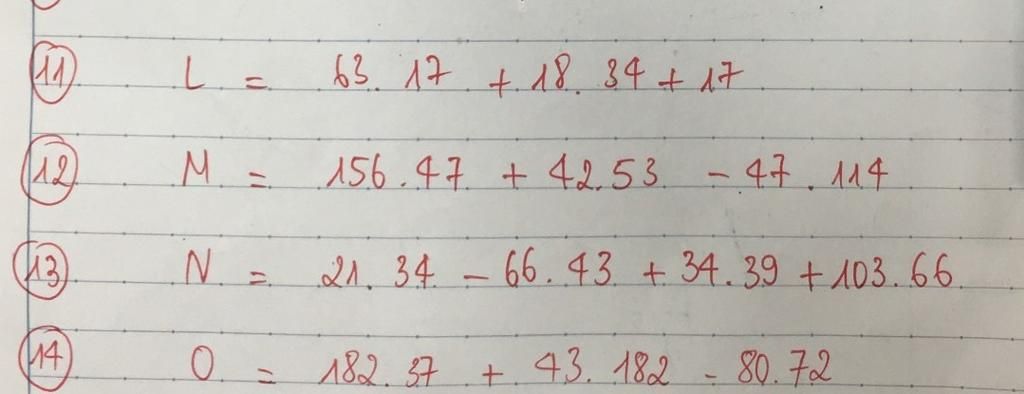 11 L = 63. 17 + 18. 34 + 17
12 M = 156.47 + 42.53 - 47. 114
13 N = 21. 34 - 66. 43 + 34. 39 + 103. 66
14 O = 182. 37 + 43. 182 - 80. 72